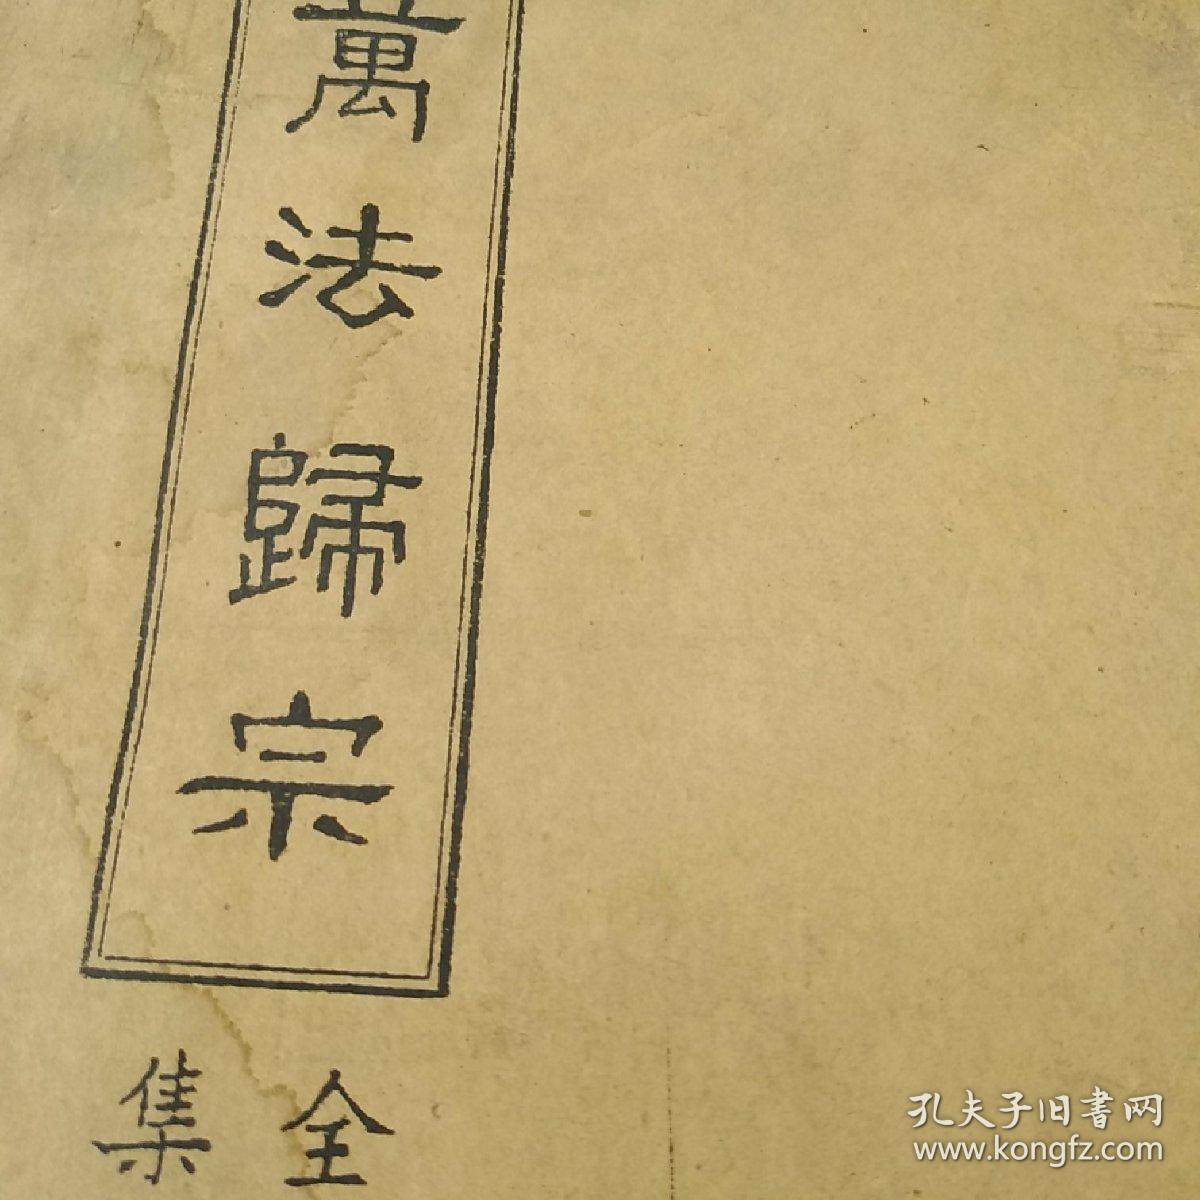 萬法歸宗
全集
孔夫子旧書网
www.kongfz.com